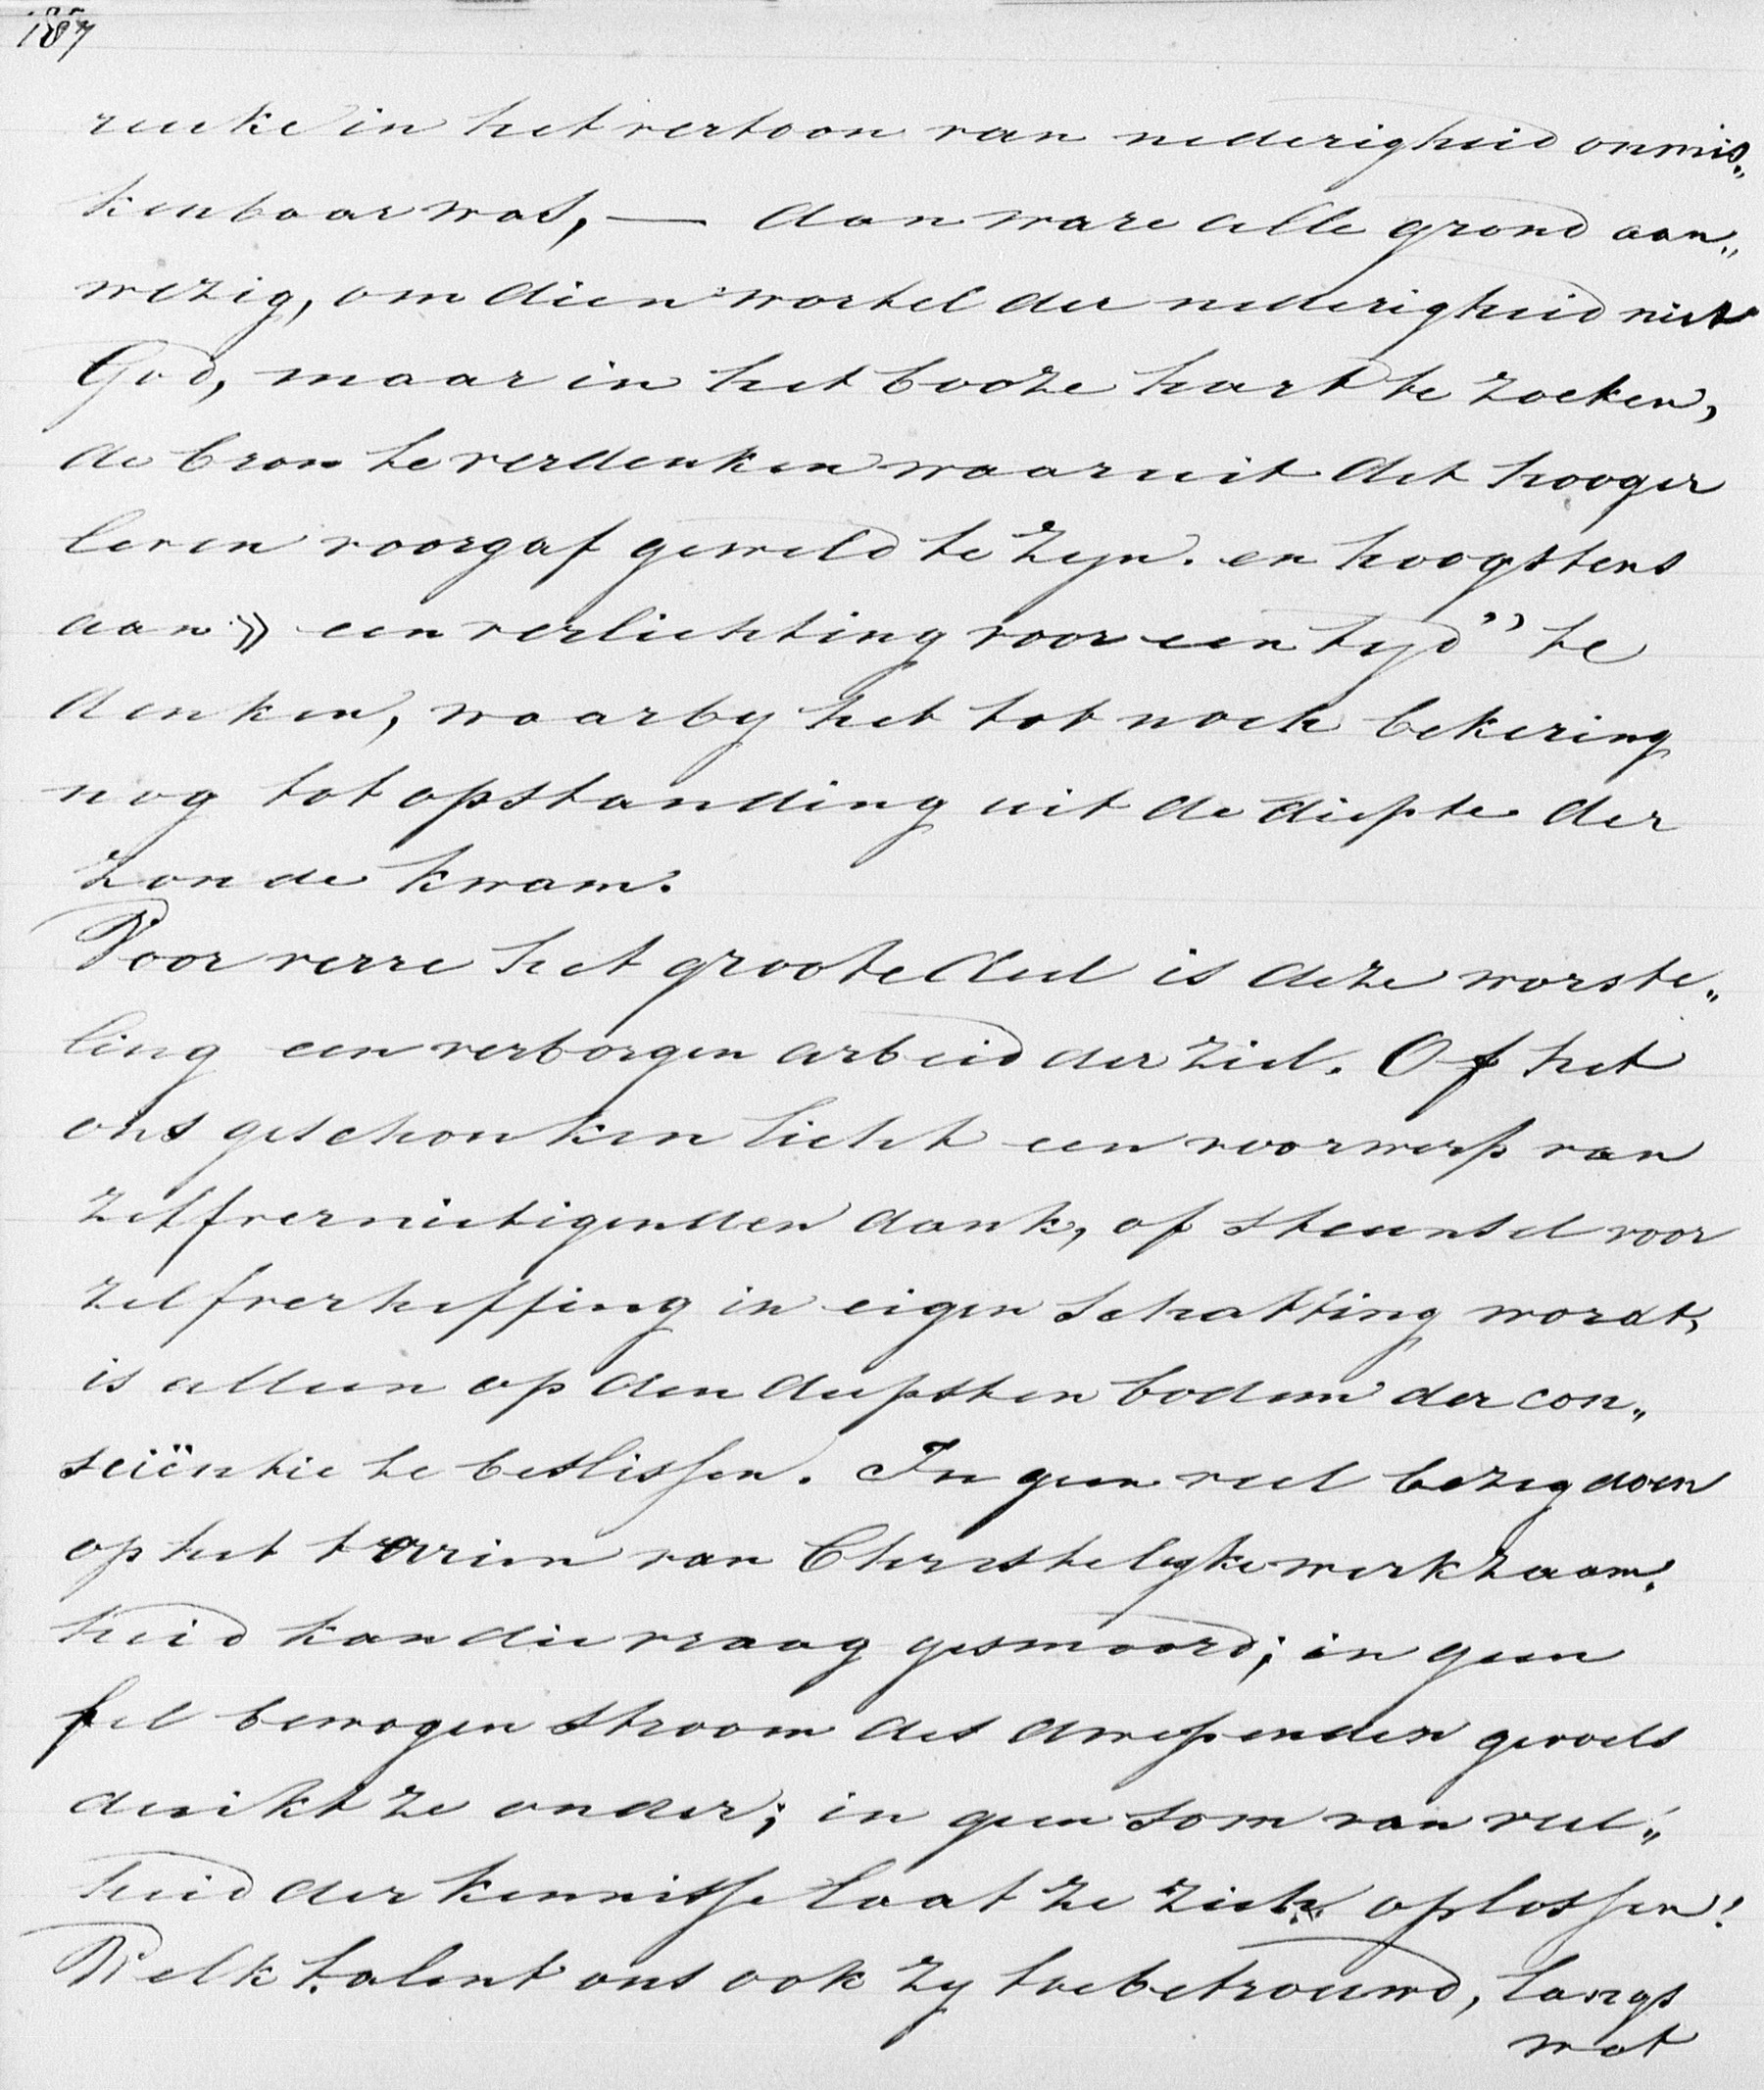 187
reuke in het vertoon van nederigheid onmis„
kenbaar was, — dan ware alle grond aan„
wezig, om dien wortel der nederigheid niet
God, maar in het booze hart te zoeken,
de bron te verdenken waaruit det hooger
leven voorgaf geweld te zyn. en hoogstens
aan » een verlichting voor een tyd” te
denken, waarby het tot noch bekering
nog tot opstanding uit de diepte der
zonde kwam.
Voor verre het groote deel is deze worste„
ling een verborgen arbeid der ziel. Of het
ons geschonken licht een voorwerp van
zelfvernietigenden dank, of steunsel voor
zelfverheffing in eigen schatting wordt,
is alleen op den diepsten bodem der con„
sciëntie te beslissen. In geen veel bezig doen
op het terrein van Christelyke werkzaam„
heid kan die vraag gesmoord; in geen
fel bewogen stroom des dwependen gevoels
duikt ze onder; in geen som van veel„
heid der kennisse laat ze zich oplossen!
Welk talent ons ook zy toebetrouwd, langs
wat